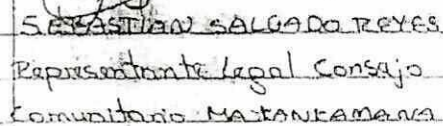 SEBASTIAN SALGADO REYES
Representante legal Consejo
Comunitario MAKANKAMANA